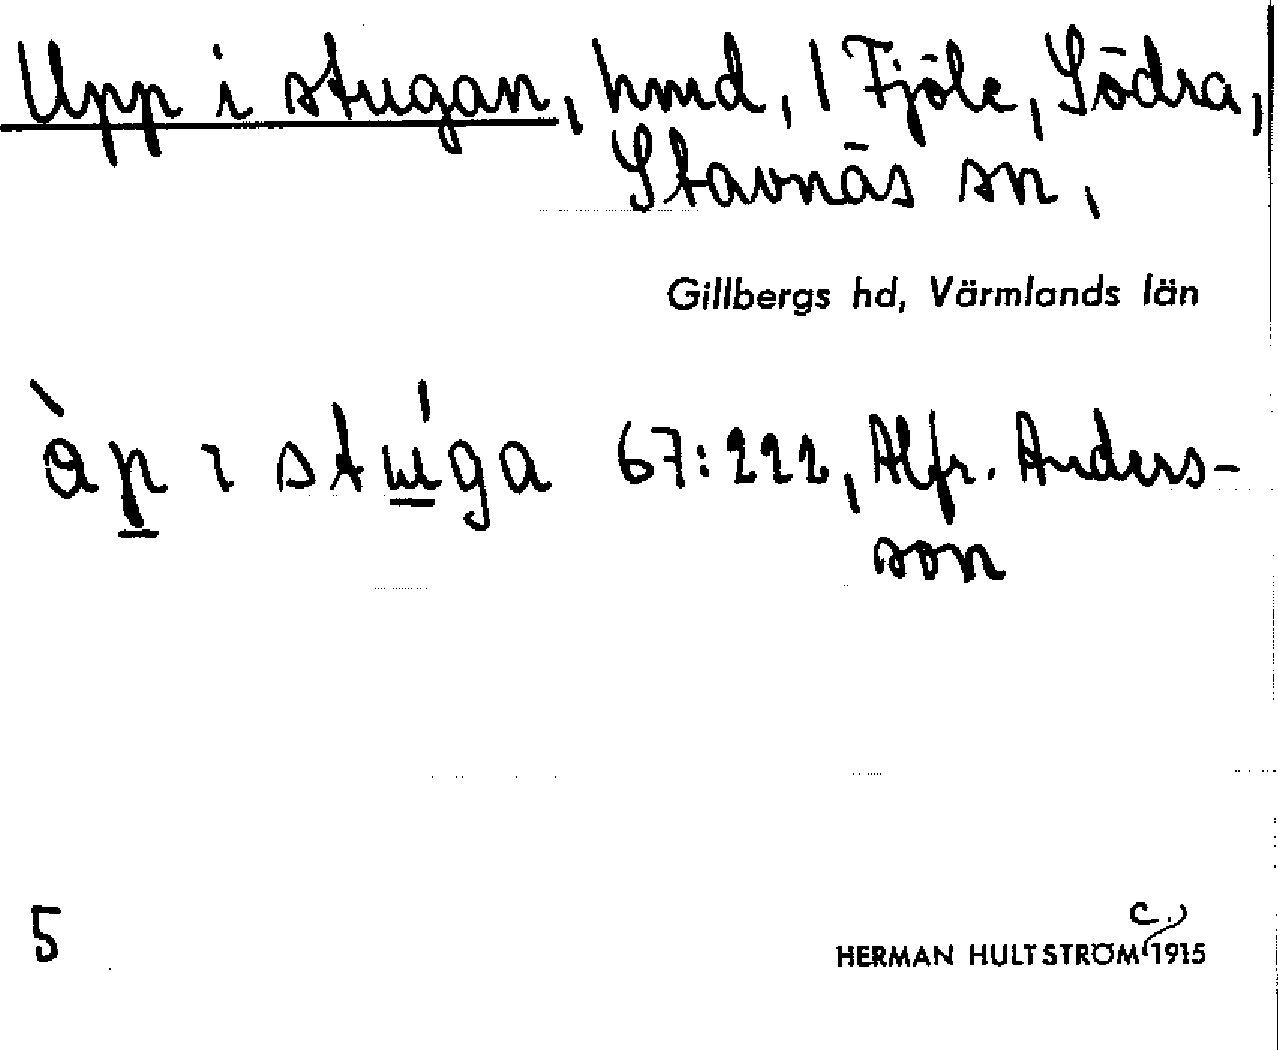 Upp i stugan, hmd, 1 Fjöle, Södra,
Stavnäs sn,
Gillbergs hd, Värmlands län
åp ı stuga 67:222, Alfr. Anders-
son
5
HERMAN HULTSTRÖM c.) 1915